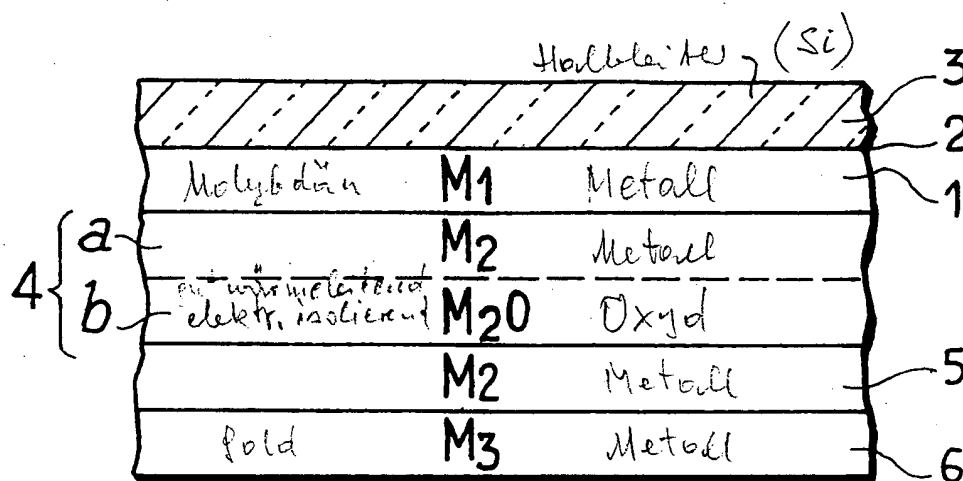 Halbleiter (Si)
3
2
Molybdän M1 Metall 1
4 a M2 Metall
gut wärmeleitend
b elektr. isolierend M2O Oxyd
M2 Metall 5
Gold M3 Metall 6